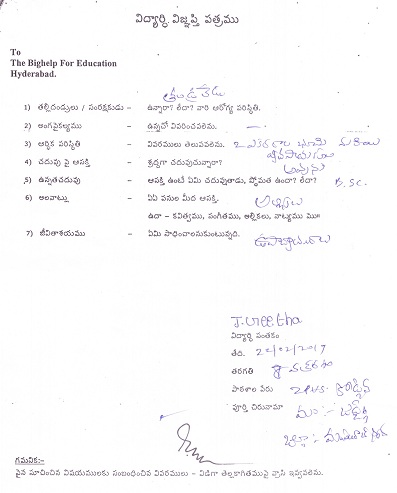 విద్యార్థి విజ్ఞప్తి పత్రము
To
The Bighelp For Education
Hyderabad.
తండ్రి లేడు
1) తల్లిదండ్రులు / సంరక్షకుడు – ఉన్నారా? లేదా? వారి ఆరోగ్య పరిస్థితి.
2) అంగవైకల్యము – ఉన్నచో వివరించవలెను. —
3) ఆర్థిక పరిస్థితి – వివరములు తెలుపవలెను. భూమి
4) చదువు పై ఆసక్తి – శ్రద్ధగా చదువుచున్నారా? అవును
5) ఉన్నతచదువు – ఆసక్తి ఉంటే ఏమి చదువుతాడు, స్తోమత ఉందా? లేదా? B.SC.
6) అలవాట్లు – ఏఏ పనుల మీద ఆసక్తి.
ఉదా – కవిత్వము, సంగీతము, అల్లికలు, నాట్యము మొ॥
7) జీవితాశయము – ఏమి సాధించాలనుకుంటున్నది.
విద్యార్థి సంతకం
తేది. 22/02/2017
తరగతి 8
పాఠశాల పేరు ZPHS.
పూర్తి చిరునామా
జిల్లా:-
గమనిక:-
పైన సూచించిన విషయములకు సంబంధించిన వివరములు - విడిగా తెల్లకాగితముపై వ్రాసి ఇవ్వవలెను.